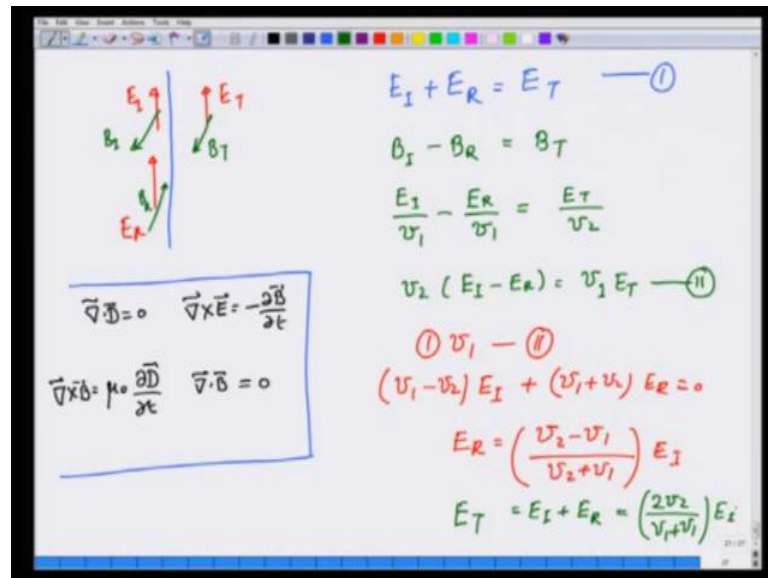 File Edit View Insert Actions Tools Help
E_I E_T
B_I B_T
B_R
E_R
∇⃗·D⃗=0 ∇⃗×E⃗=-∂B⃗/∂t
∇⃗×B⃗=μ₀ ∂D⃗/∂t ∇⃗·B⃗ = 0
E_I + E_R = E_T — (I)
B_I - B_R = B_T
E_I/v_1 - E_R/v_1 = E_T/v_2
v_2 ( E_I - E_R) = v_1 E_T — (II)
(I) v_1 — (II)
(v_1-v_2) E_I + (v_1+v_2) E_R = 0
E_R = ( (v_2-v_1)/(v_2+v_1) ) E_I
E_T = E_I + E_R = ( 2v_2/(v_1+v_1) ) E_i
27 / 27
27